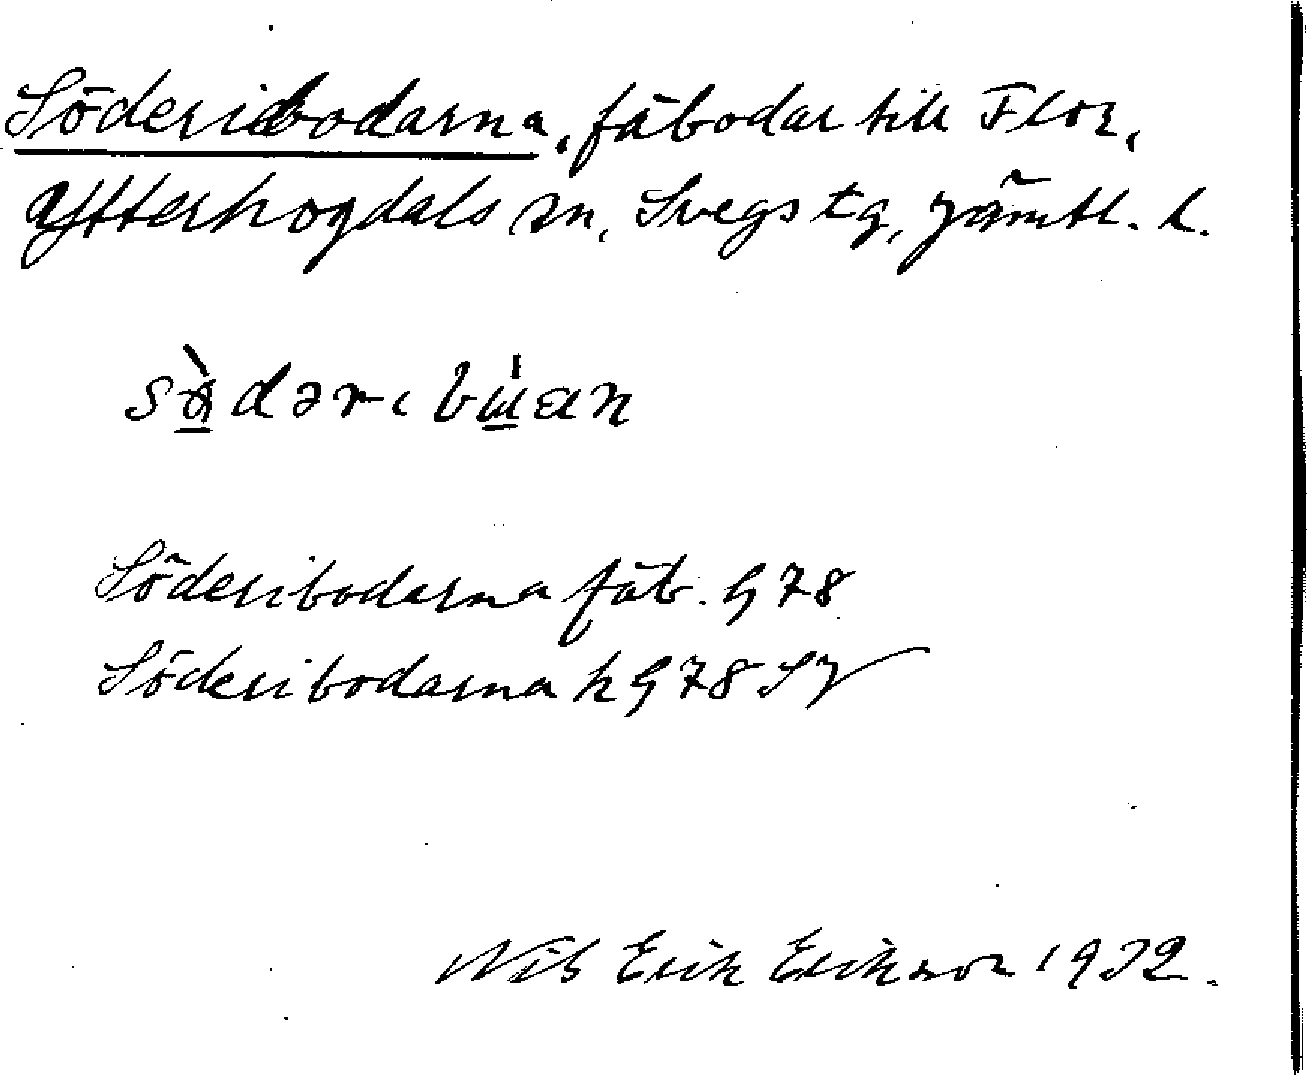 Söderibodarna, fäbodar till Flor,
Ytterhogdals sn, Svegs tg, Jämtl. l.
sö̀dəribu̍an
Söderibodarna fäb. G 78
Söderibodarna h G 78 SV
Nils Erik Erikson 1932.